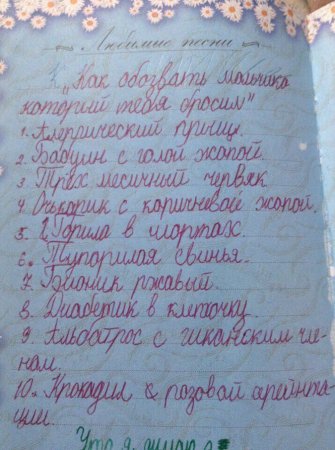 Любимые песни
"Как обозвать мальчика
который тебя бросил"
1. Алергический прищ.
2. Бабуин с голой жопой.
3. Трёх месичный червяк
4. Очкорик с коричневой жопой.
5. Горила в шортах.
6. Тупорилая свинья.
7. Бионик ржавый.
8. Диабетик в клеточку.
9. Альботрос с гиканским чле-
ном.
10. Крокадил с розовой орейнта-
ции.
Что я